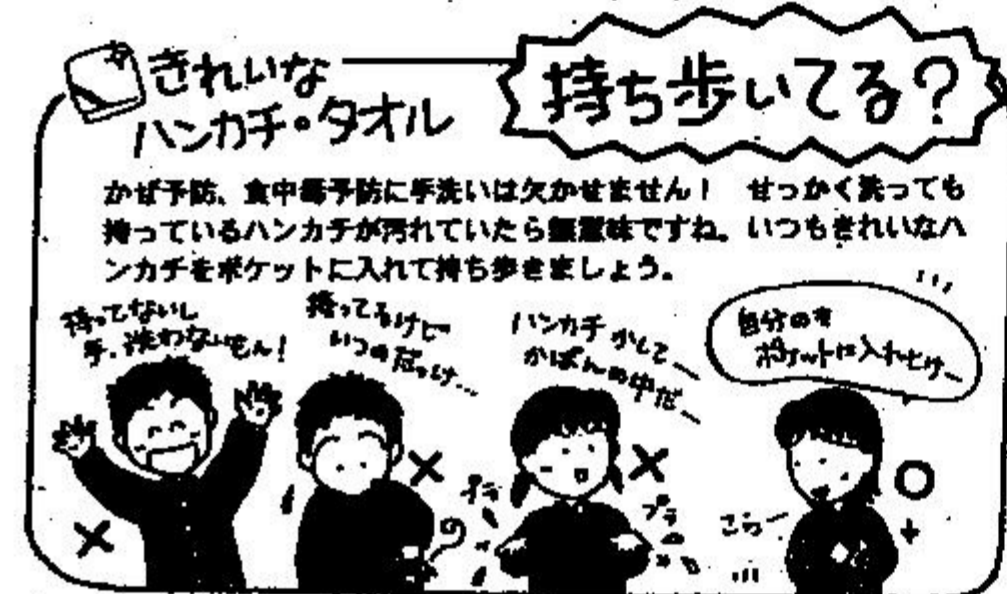 きれいな
ハンカチ・タオル
持ち歩いてる?
かぜ予防、食中毒予防に手洗いは欠かせません! せっかく洗っても
持っているハンカチが汚れていたら無意味ですね。いつもきれいなハ
ンカチをポケットに入れて持ち歩きましょう。
持ってないし
手、洗わないもん!
持ってるけど
いつのだっけ…
ハンカチ かして―
かばんの中だ―
自分のを
ポケットに入れとけ―
×
×
×
○
プラ
プラ